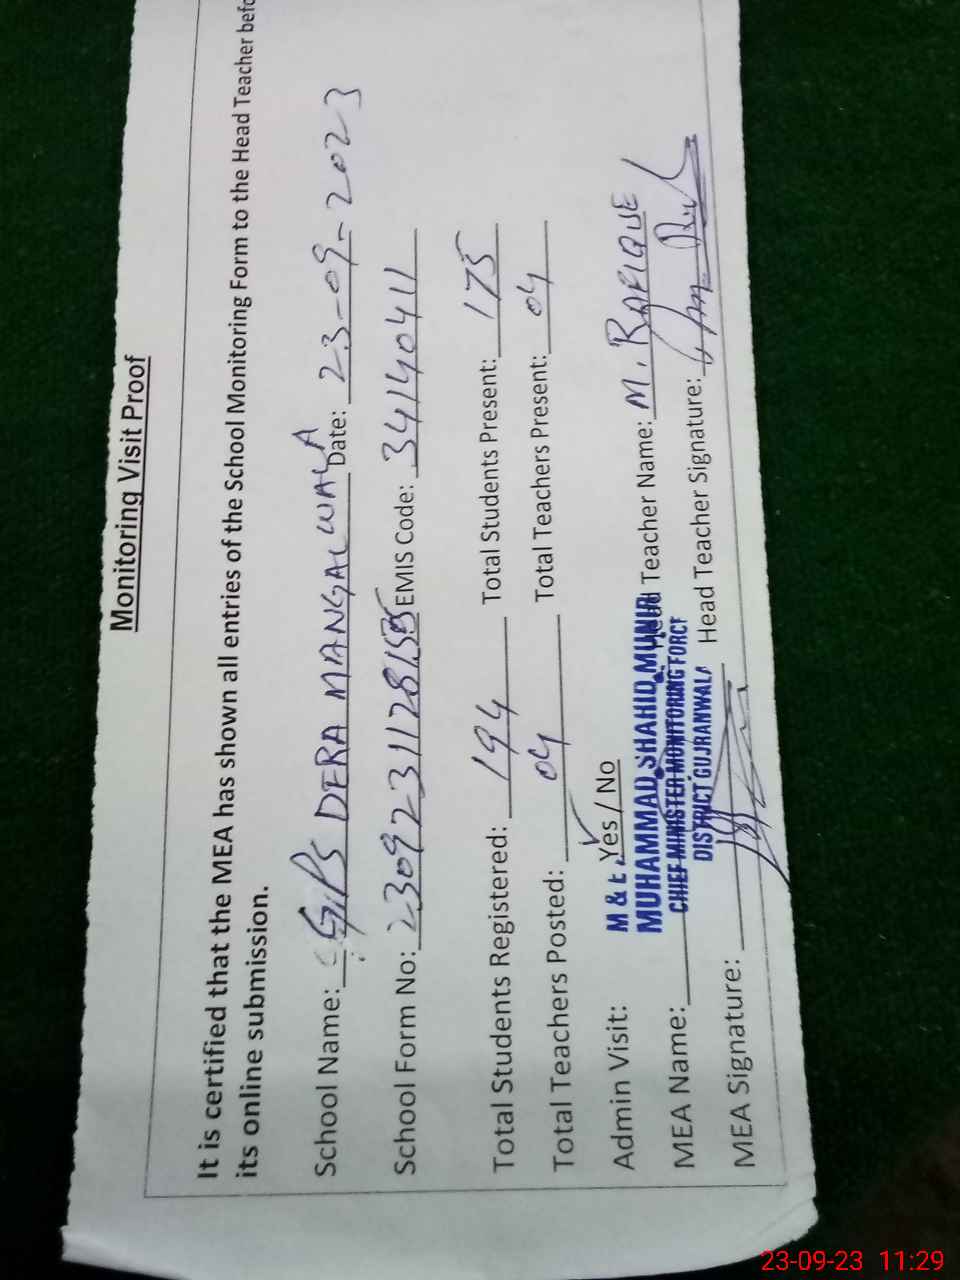 Monitoring Visit Proof
It is certified that the MEA has shown all entries of the School Monitoring Form to the Head Teacher befo
its online submission.
School Name: GPS DERA MANGAL WALA Date: 23-09-2023
School Form No: EMIS Code: 34140411
Total Students Registered: 194 Total Students Present: 175
Total Teachers Posted: 04 Total Teachers Present: 04
Admin Visit: Yes / No
M & E
MUHAMMAD SHAHID MUNIR
MEA Name: Head Teacher Name: M. RAFIQUE
CHIEF MINISTER MONITORING FORCE
DISTRICT GUJRANWALA
MEA Signature: Head Teacher Signature:
23-09-23 11:29